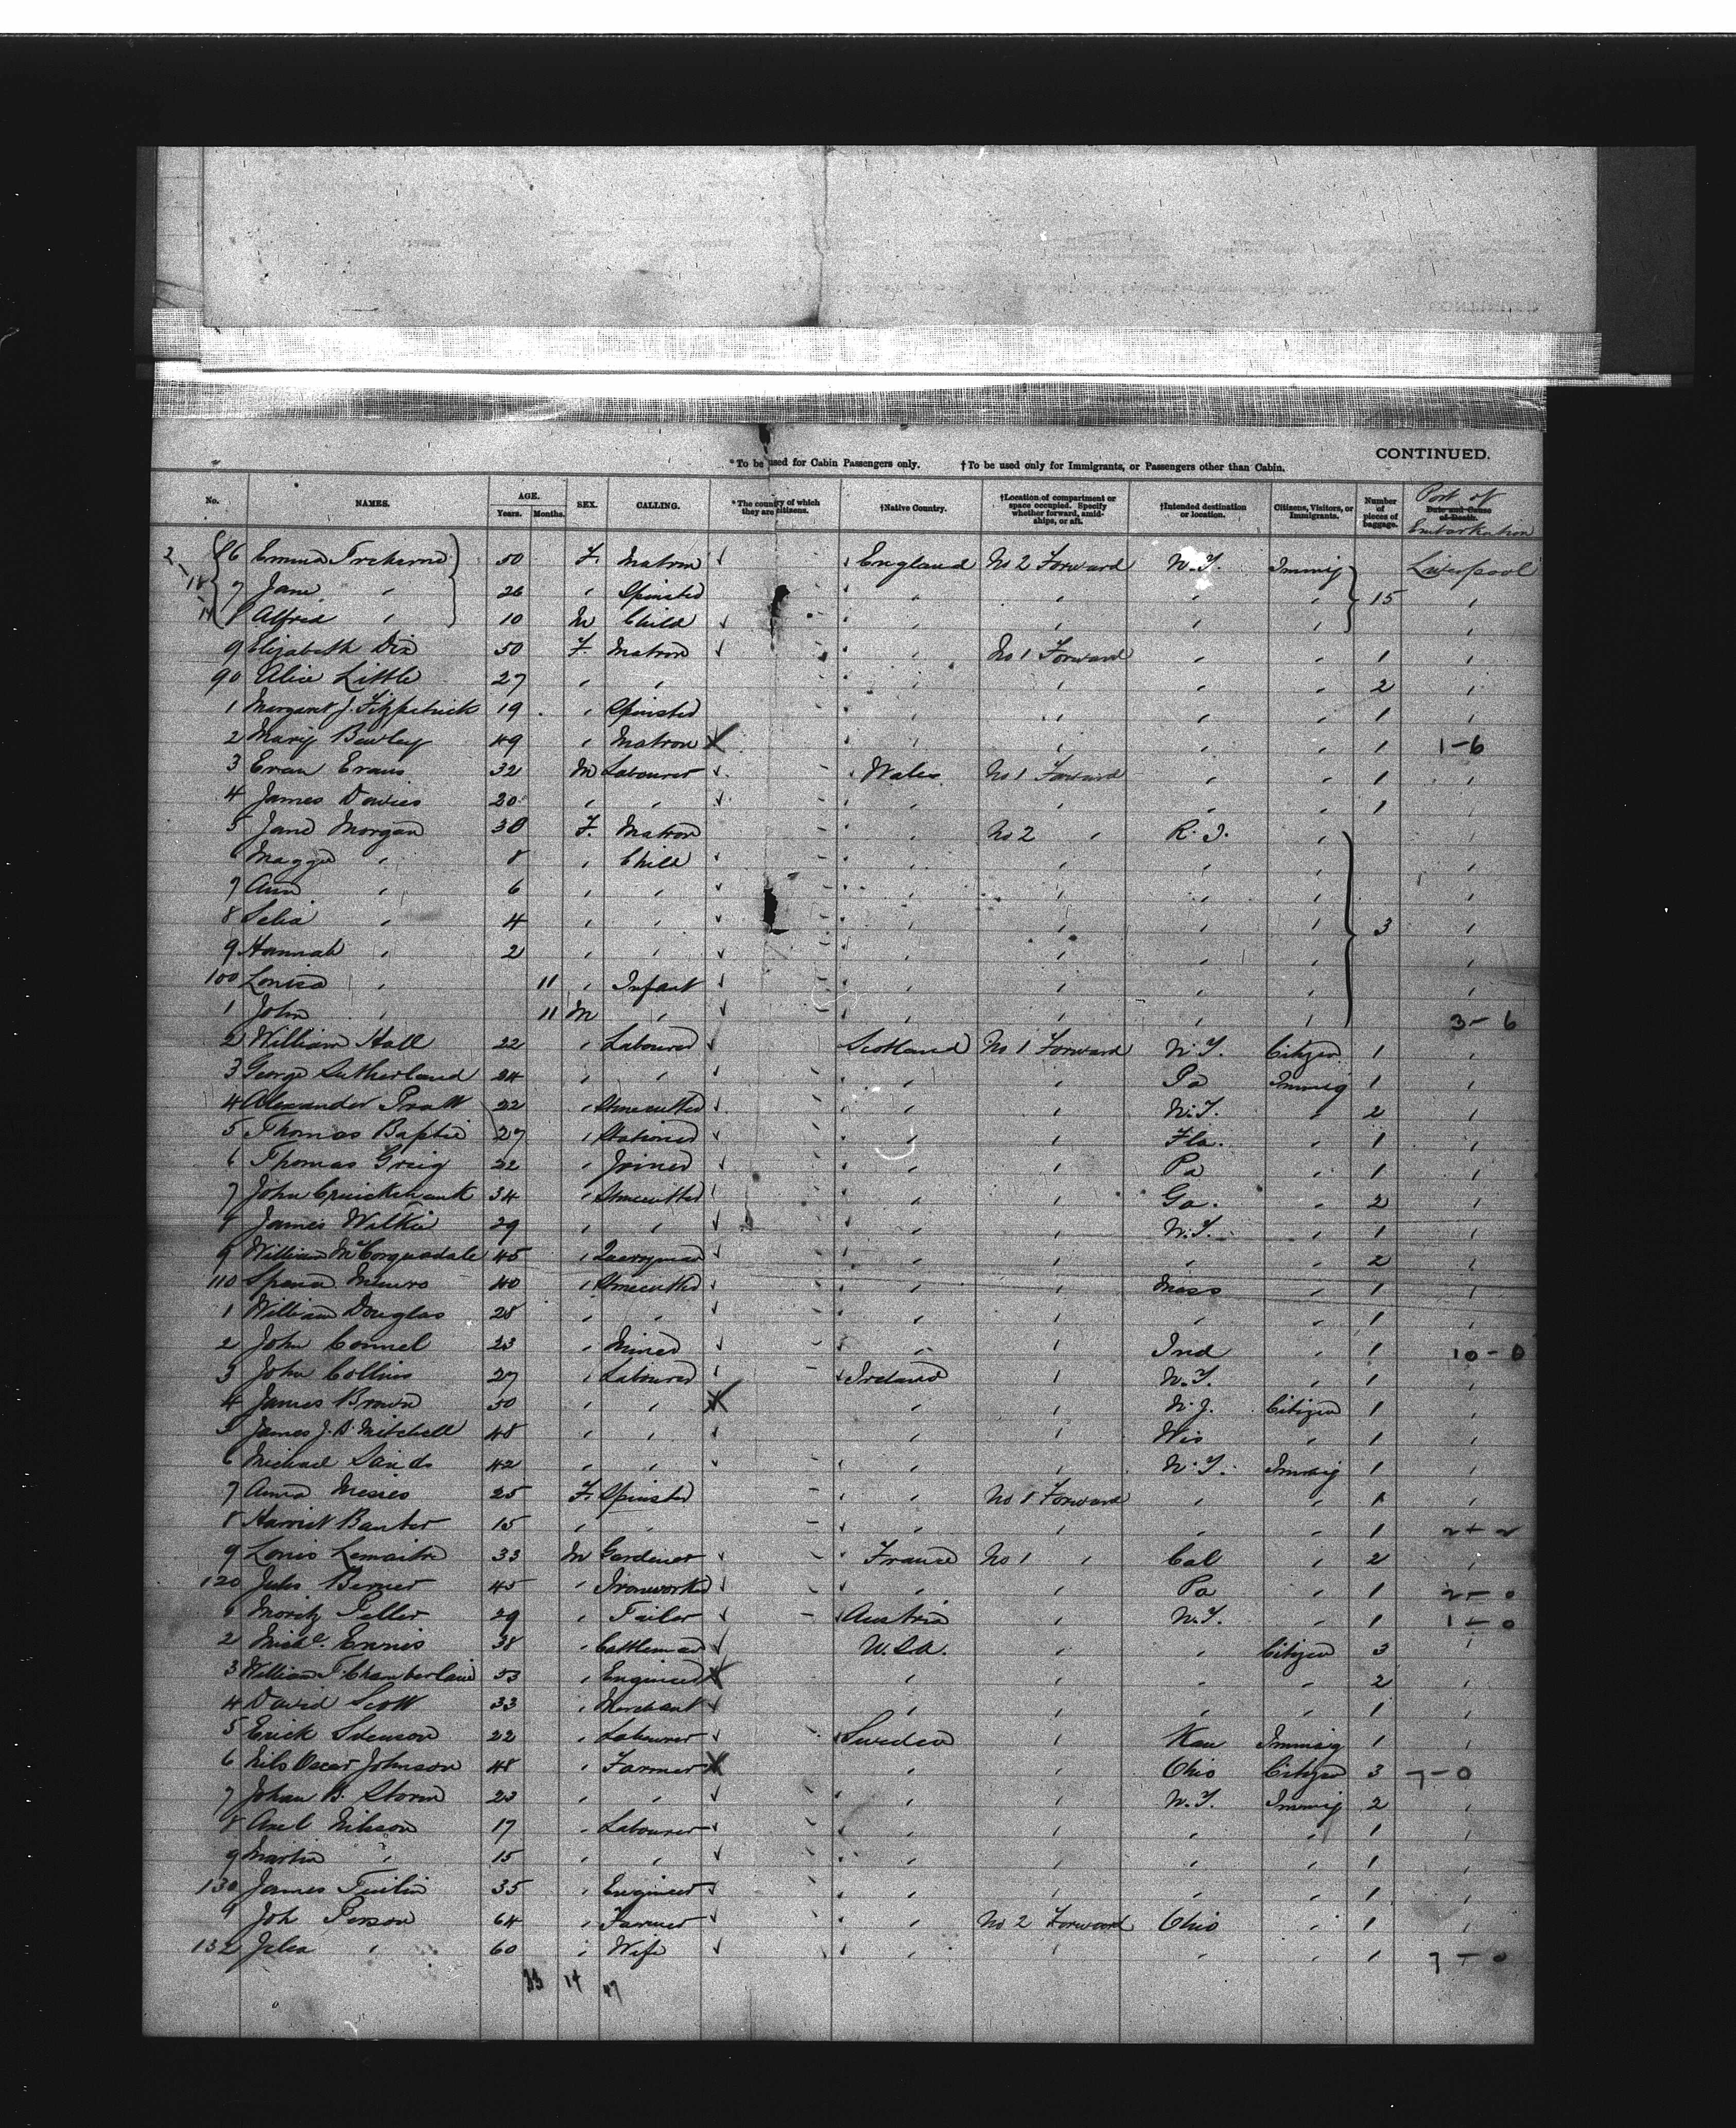 CONTINUED.
*To be used for Cabin Passengers only. †To be used only for Immigrants, or Passengers other than Cabin.
No. NAMES. AGE. Years. Months. SEX. CALLING. *The country of which they are citizens. †Native Country. †Location of compartment or space occupied. Specify whether forward, amidships, or aft. †Intended destination or location. Citizens, Visitors, or Immigrants. Number of pieces of baggage. Date and Cause of Death. Port of Embarkation
86 Emma Treherne 50 F. Matron England No 2 Forward N.Y. Immig Liverpool
7 Jane " 26 " Spinster " " " " 15 "
8 Alfred " 10 M Child " " " " "
9 Elizabeth Dix 50 F. Matron " No 1 Forward " " 1 "
90 Alice Little 27 " " " " " " 2 "
1 Margaret J. Fitzpatrick 19 " Spinster " " " " 1 "
2 Mary Bewley 49 " Matron " " " " 1 1-6
3 Evan Evans 32 M Labourer Wales No 1 Forward " " 1 "
4 James Davies 20 " " " " " 1
5 Jane Morgan 30 F. Matron " No 2 " R.I. "
6 Maggie " 8 " Child " " " " "
7 Ann " 6 " " " " " " "
8 Selia " 4 " " " " " " 3 "
9 Hannah " 2 " " " " " " "
100 Louisa " 11 " Infant " " " " "
1 John " 11 M " " " " " 3-6
2 William Hall 22 " Labourer Scotland No 1 Forward N.Y. Citizen 1 "
3 George Sutherland 24 " " " " Pa Immig 1 "
4 Alexander Pratt 22 " Stonecutter " " N.Y. " 2 "
5 Thomas Baptie 27 " Stationer " " Fla. " 1 "
6 Thomas Greig 22 " Joiner " " Pa " 1 "
7 John Cruickshank 34 " Stonecutter " " Ga. " 2 "
8 James Wilkie 29 " " " " N.Y. " 1 "
9 William McCorquodale 45 " Quarryman " " " " 2 "
110 Munro 40 " Stonecutter " " Mass " 1 "
1 William Douglas 28 " " " " " " 1 "
2 John Connel 23 " Miner " " Ind " 1 10-0
3 John Collins 27 " Labourer Ireland " N.Y. " 1 "
4 James Brown 50 " " " " N.J. Citizen 1 "
5 James J. D. Mitchell 48 " " " " Wis " 1 "
6 Michael Sands 42 " " " " N.Y. Immig 1 "
7 Anna 25 F. Spinster " No 8 Forward " " 1 "
8 Harriet 15 " " " " " " 1 2-2
9 Louis Lemaitre 33 M Gardener France No 1 " Cal " 2 "
120 Jules 45 " Ironworker " " Pa " 1 2-0
1 Moritz Teller 29 " Tailor Austria " N.Y. " 1 1-0
2 Michl. Ennis 38 " Cattleman U.S.A. " " Citizen 3 "
3 William T. Chamberlain 53 " Engineer " " " " 2 "
4 David Scott 33 " Merchant " " " " 1 "
5 Erick 22 " Labourer Sweden " Kan Immig 1 "
6 Nils Oscar Johnson 48 " Farmer " " Ohio Citizen 3 7-0
7 Johan B. Storm 23 " " " " N.Y. Immig 2 "
8 Axel Nilsson 17 " Labourer " " " " 1 "
9 Martin " 15 " " " " " " 1 "
130 James 35 " Engineer " " " " 1 "
Joh Person 64 " Farmer " No 2 Forward Ohio " 1 "
132 " 60 " Wife " " " " 1 7-0
33 14 47